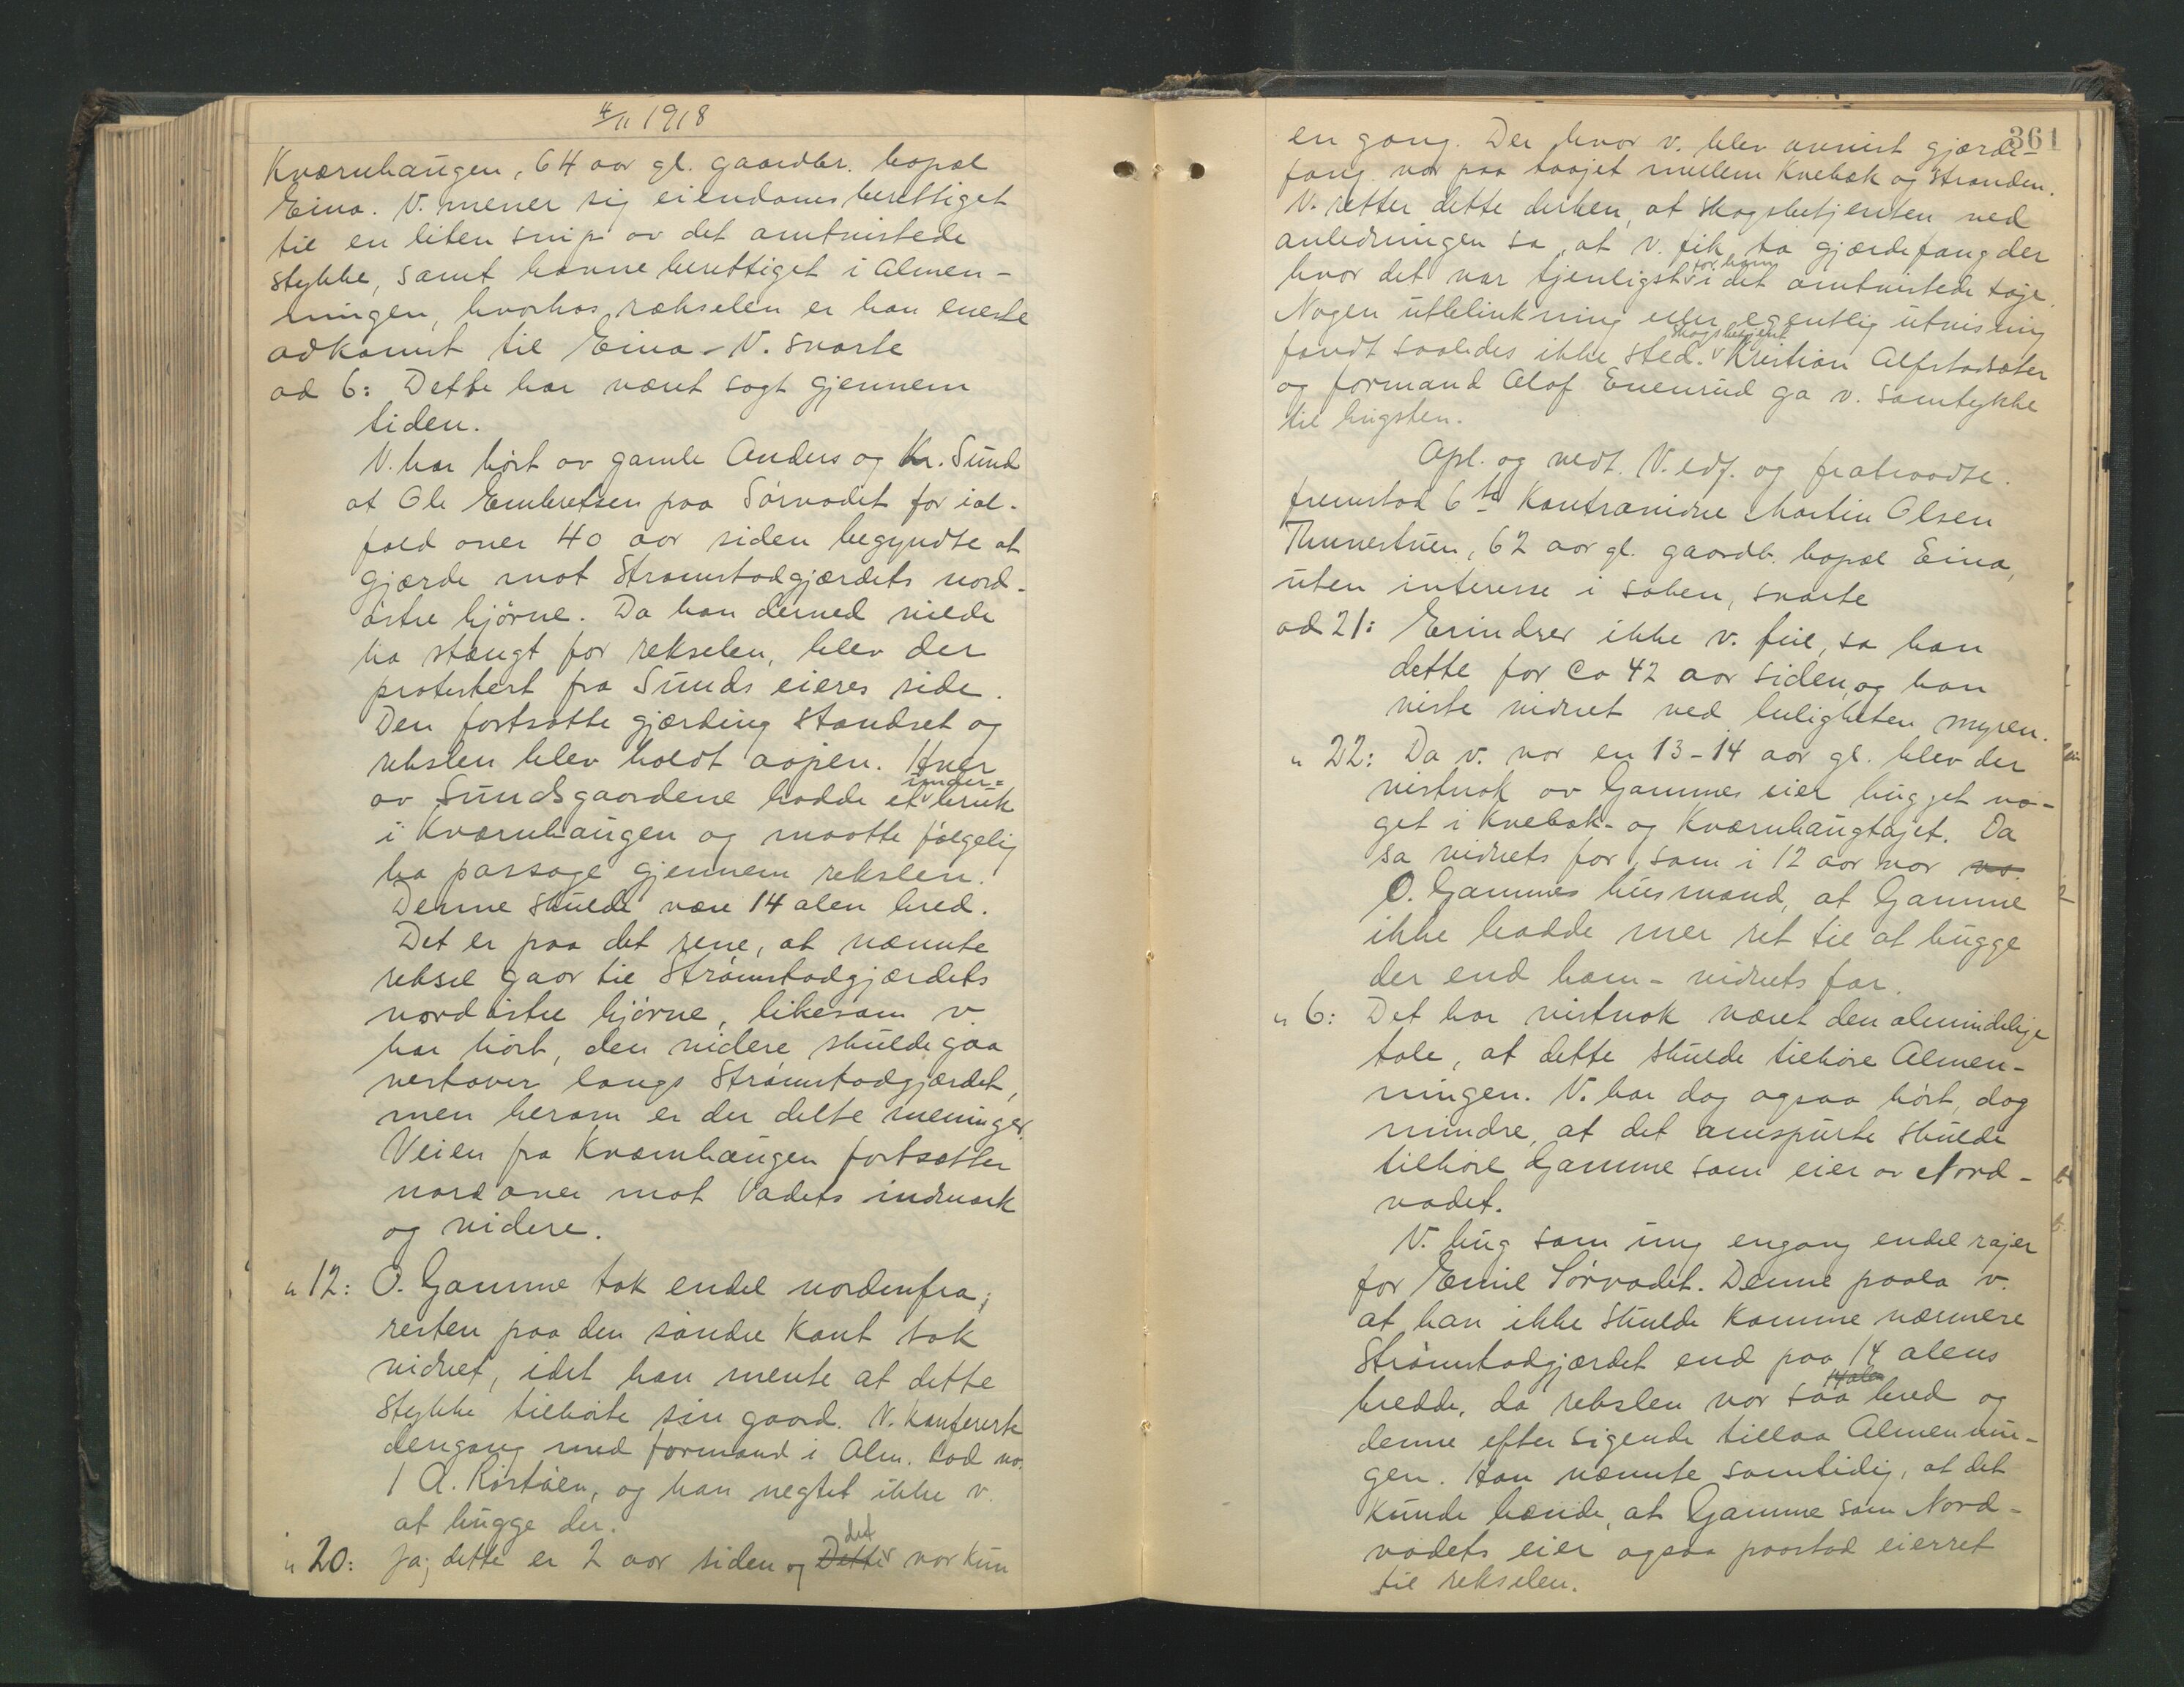 4/11 1918
Kværnhaugen, 64 aar gl. gaardbr. bopæl
Eina. V. mener sig eiendomsberettiget
til en liten snip av det omtvistede
stykke, samt havneberettiget i Almen-
ningen, hvorhos rækselen er han eneste
adkomst til Eina. V. svarte
ad 6: Dette har været sagt gjennem
tiden.
V. har hørt av gamle Anders og Kr. Sund
at Ole Embretsen paa Sørvadet for ial-
fald over 40 aar siden begyndte at
gjærde mot Strømstadgjærdets nord-
østre hjørne. Da han derved vilde
ha stængt for rekselen, blev der
protestert fra Sunds eieres side.
Den fortsatte gjærding standset og
rekslen blev holdt aapen. Hver
av Sundsgaardene hadde et under-bruk
i Kværnhaugen og maatte følgelig
ha passage gjennem rekslen.
Denne skulde være 14 alen bred.
Det er paa det rene, at nævnte
reksel gaar til Strømstadgjærdets
nordøstre hjørne, likesom v.
har hørt, den videre skulde gaa
vestover langs Strømstadgjærdet,
men herom er der delte meninger.
Veien fra Kværnhaugen fortsætter
nordover mot Vadets indmark
og videre.
" 12: O. Gamme tok endel nordenfra;
resten paa den søndre kant tok
vidnet, idet han mente at dette
stykke tilhørte sin gaard. V. konfererte
dengang med formand i Alm. lod no.
1 A. Røstøen, og han negtet ikke v.
at hugge der.
" 20: Ja; dette er 2 aar siden og Dette det var kun
361
en gang. Der hvor v. blev anvist gjærde-
fang var paa taajet mellem Kvebæk og Stranden.
V. retter dette derhen, at skogsbetjenten ved
anledningen sa, at v. fik ta gjærdefang der
hvor det var tjenligst for ham i det omtvistede tøje.
Nogen utblinkning eller egentlig utvisning
fandt saaledes ikke sted. Skogsbetjent Kristian Alfstadsæter
og formand Olof Enenrud ga v. samtykke
til hugsten.
Opl. og vedt. V. edf. og fratraadte.
Fremstod 6te Kontravidne Martin Olsen
Thunestuen, 62 aar gl. gaardb. bopæl Eina,
uten interesse i saken, svarte
ad 21: Erindrer ikke v. feil, sa han
dette for ca 42 aar siden, og han
viste vidnet ved leiligheten myren.
" 22: Da v. var en 13-14 aar gl. blev der
vistnok av Gammes eier hugget no-
get i Kvebæk- og Kværnhaugtajet. Da
sa vidnets far, som i 12 aar var no.
O. Gammes husmand, at Gamme
ikke hadde mer ret til at hugge
der end ham - vidnets far.
" 6: Det har vistnok været den almindelige
tale, at dette skulde tilhøre Almen-
ningen. V. har dog ogsaa hørt, dog
mindre, at det omspurte skulde
tilhøre Gamme som eier av Nord-
vadet.
V. hug som ung engang endel rajer
for Emil Sørvadet. Denne paala v.
at han ikke skulde komme nærmere
Strømstadgjærdet end paa 14 alens
bredde, da rekslen var saa 14 alen bred og
denne efter sigende tillaa Almennin-
gen. Han nævnte samtidig, at det
kunde hænde, at Gamme som Nord-
vadets eier ogsaa paastod eierret
til rekselen.